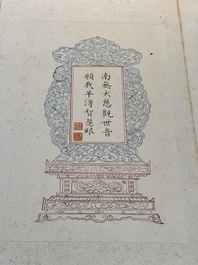 南無大悲觀世音
願我早得智慧眼